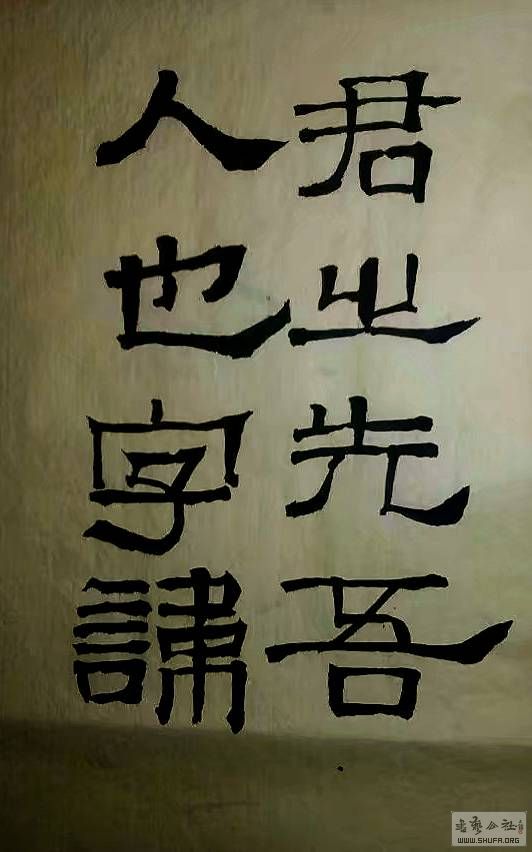 君之先吾
人也字
書藝公社
WWW.SHUFA.ORG